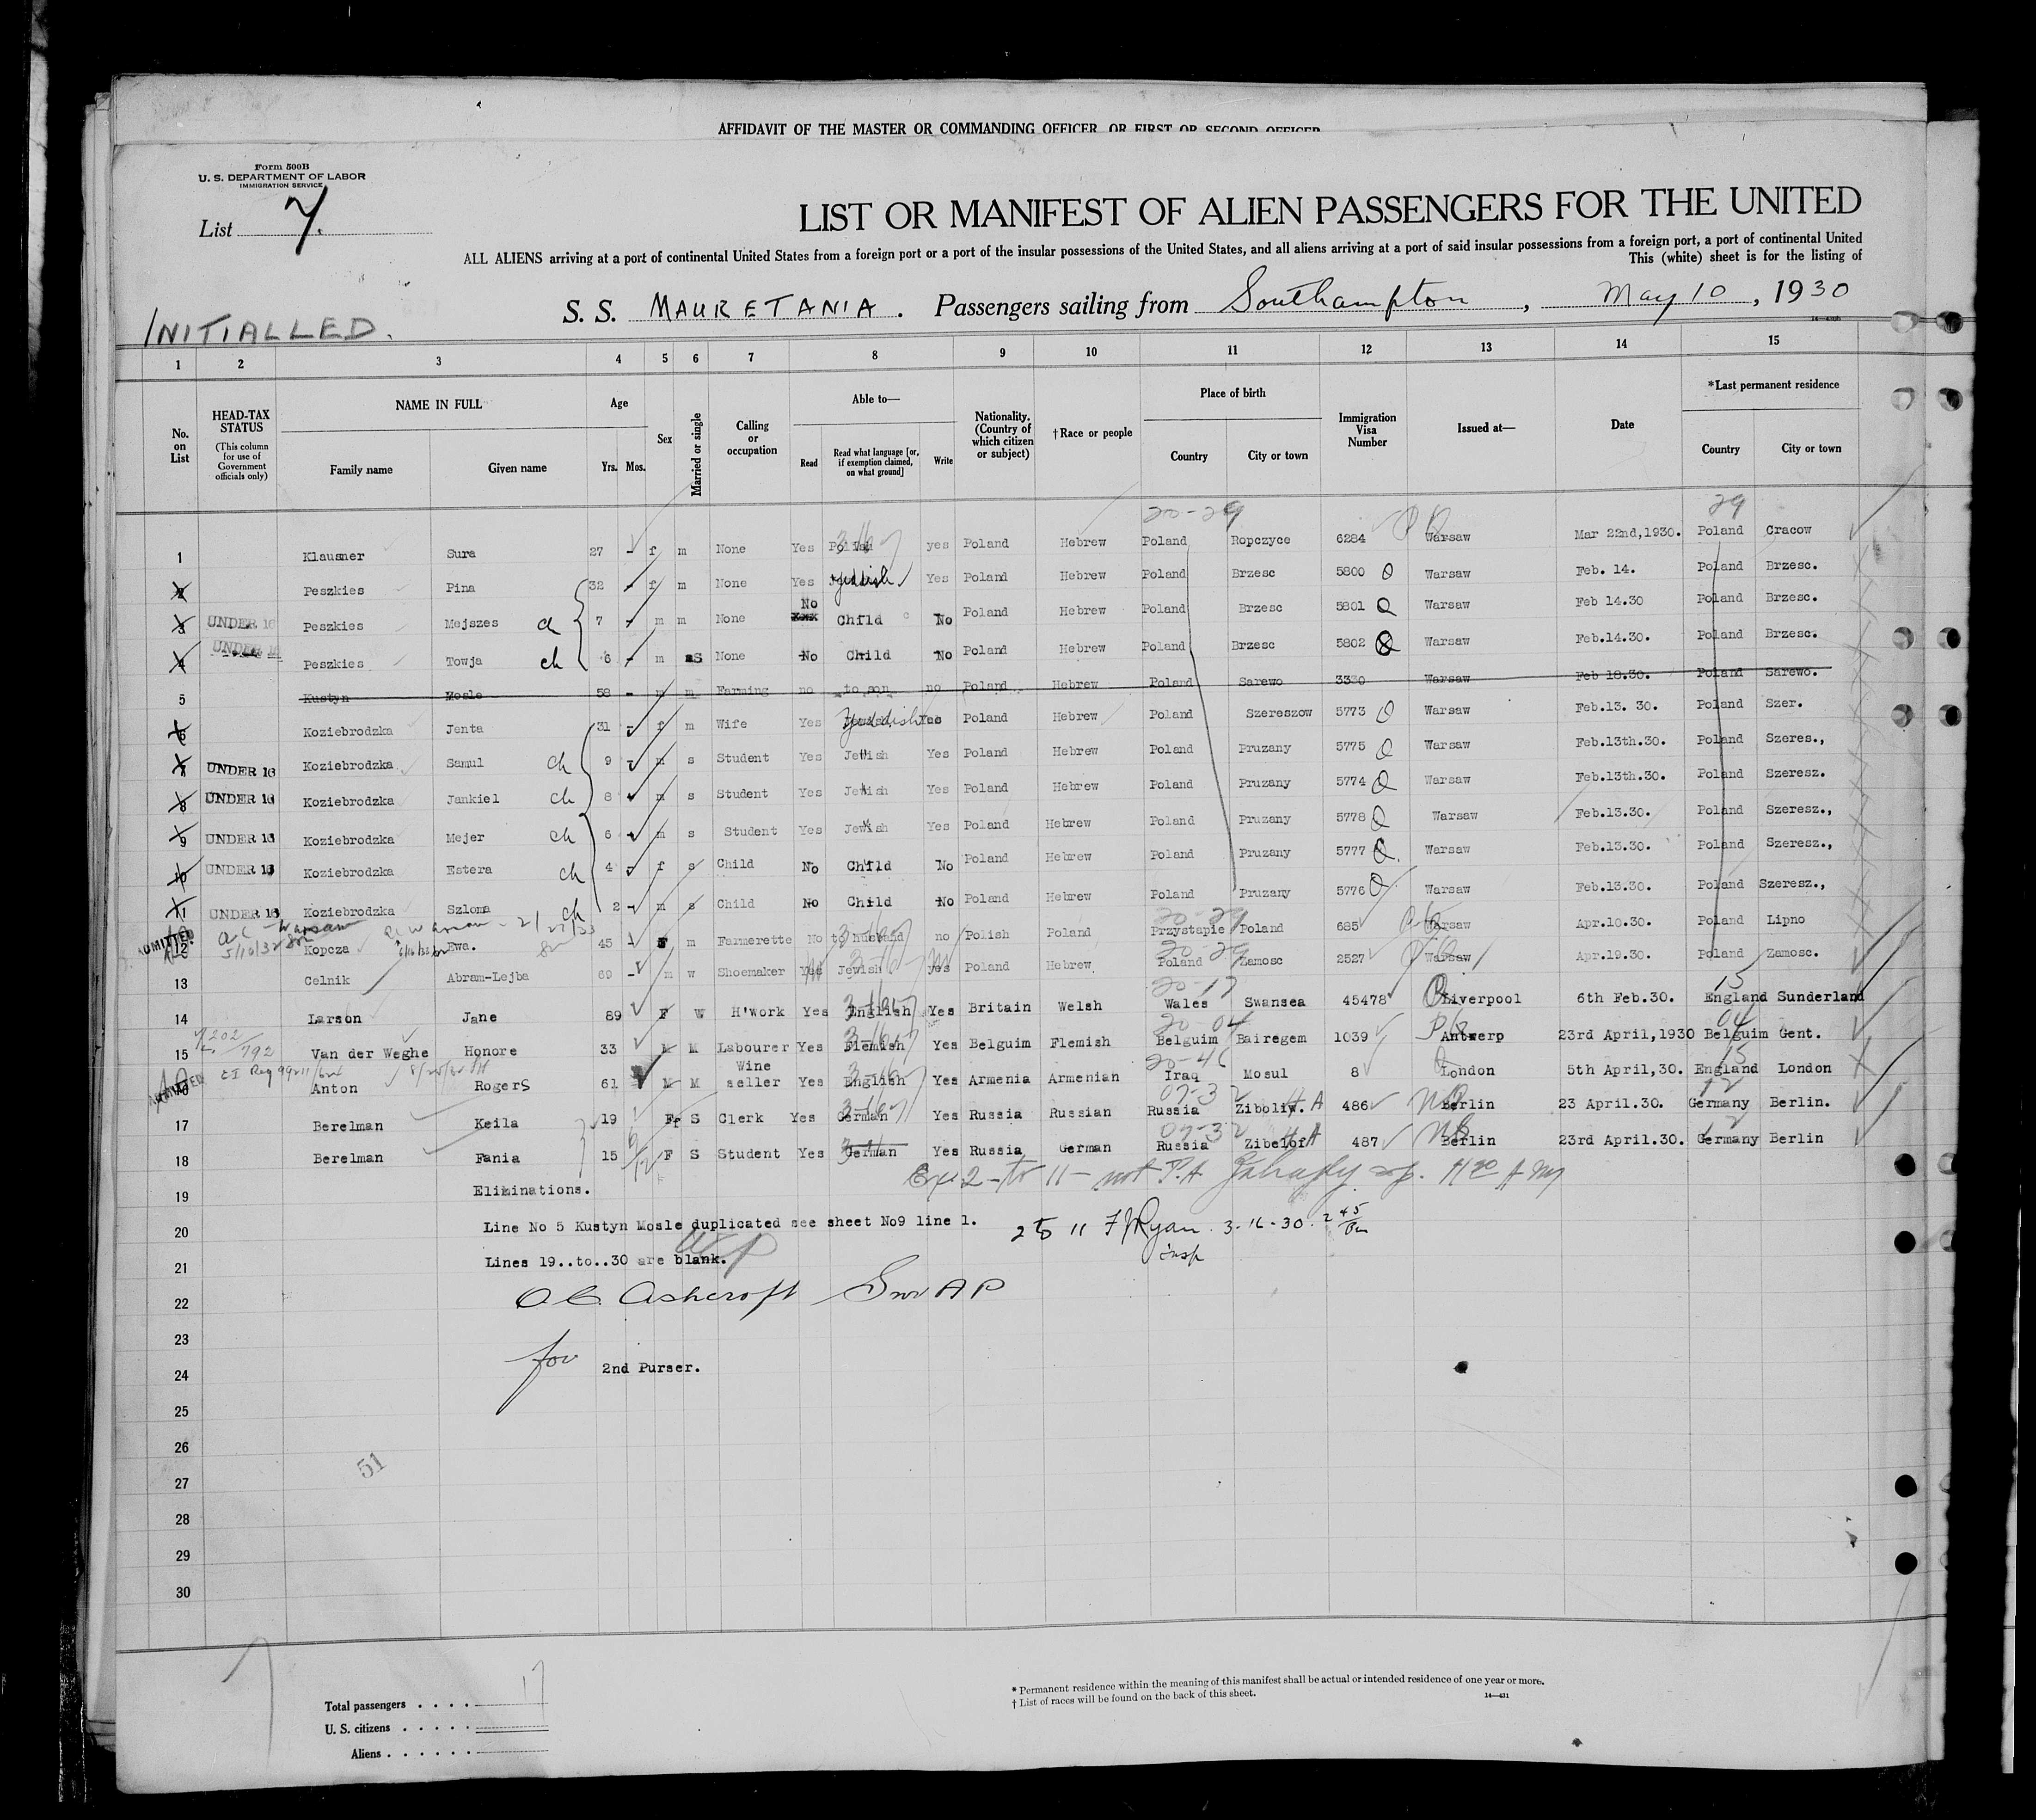 AFFIDAVIT OF THE MASTER OR COMMANDING OFFICER, OR FIRST OR SECOND OFFICER
Form 500B
U. S. DEPARTMENT OF LABOR
IMMIGRATION SERVICE
List 7.
LIST OR MANIFEST OF ALIEN PASSENGERS FOR THE UNITED
ALL ALIENS arriving at a port of continental United States from a foreign port or a port of the insular possessions of the United States, and all aliens arriving at a port of said insular possessions from a foreign port, a port of continental United
This (white) sheet is for the listing of
INITIALLED.
S. S. MAURETANIA. Passengers sailing from Southampton, May 10, 1930
1 2 3 4 5 6 7 8 9 10 11 12 13 14 15
No. on List
HEAD-TAX STATUS (This column for use of Government officials only)
NAME IN FULL Family name Given name
Age Yrs. Mos.
Sex
Married or single
Calling or occupation
Able to— Read Read what language [or, if exemption claimed, on what ground] Write
Nationality. (Country of which citizen or subject)
†Race or people
Place of birth Country City or town
Immigration Visa Number
Issued at—
Date
*Last permanent residence Country City or town
20-29 29
1 Klausner Sura 27 - f m None Yes yes Poland Hebrew Poland Ropczyce 6284 Warsaw Mar 22nd,1930. Poland Cracow
2 Peszkies Pina 32 - f m None Yes Yeddish Yes Poland Hebrew Poland Brzesc 5800 Warsaw Feb. 14. Poland Brzesc.
3 UNDER 16 Peszkies Mejszes ch 7 - m m None No Child No Poland Hebrew Poland Brzesc 5801 Warsaw Feb 14.30 Poland Brzesc.
4 UNDER 16 Peszkies Towja ch 6 - m S None No Child No Poland Hebrew Poland Brzesc 5802 Warsaw Feb.14.30. Poland Brzesc.
5 Kustyn Mosle 58 - m m Farming no to son no Poland Hebrew Poland Sarewo 3330 Warsaw Feb 18.30. Poland Sarewo.
6 Koziebrodzka Jenta 31 - f m Wife Yes Yeddish Yes Poland Hebrew Poland Szereszow 5773 Warsaw Feb.13. 30. Poland Szer.
7 UNDER 16 Koziebrodzka Samul ch 9 - m s Student Yes Jewish Yes Poland Hebrew Poland Pruzany 5775 Warsaw Feb.13th.30. Poland Szeres.,
8 UNDER 16 Koziebrodzka Jankiel ch 8 - m s Student Yes Jewish Yes Poland Hebrew Poland Pruzany 5774 Warsaw Feb.13th.30. Poland Szeresz.
9 UNDER 16 Koziebrodzka Mejer ch 6 - m s Student Yes Jewish Yes Poland Hebrew Poland Pruzany 5778 Warsaw Feb.13.30. Poland Szeresz.,
10 UNDER 16 Koziebrodzka Estera ch 4 - f s Child No Child No Poland Hebrew Poland Pruzany 5777 Warsaw Feb.13.30. Poland Szeresz.,
11 UNDER 16 Koziebrodzka Szloma ch 2 - m s Child No Child No Poland Hebrew Poland Pruzany 5776 Warsaw Feb.13.30. Poland Szeresz.,
ADMITTED
12 Kopcza Ewa. 45 - F m Farmerette No to husband no Polish Poland Przystapie Poland 685 Warsaw Apr.10.30. Poland Lipno
13 Celnik Abram-Lejba 69 - m w Shoemaker Yes Jewish yes Poland Hebrew Poland Zamosc 2527 Warsaw Apr.19.30. Poland Zamosc.
14 Larson Jane 89 F W H'work Yes English Yes Britain Welsh Wales Swansea 45478 Liverpool 6th Feb.30. England Sunderland
15 Van der Weghe Honore 33 M M Labourer Yes Flemish Yes Belguim Flemish Belguim Bairegem 1039 Antwerp 23rd April,1930 Belguim Gent.
ADMITTED
16 Anton Rogers 61 M M Wine seller Yes English Yes Armenia Armenian Iraq Mosul 8 London 5th April,30. England London
17 Berelman Keila 19 F S Clerk Yes German Yes Russia Russian Russia Ziboliw. 486 Berlin 23 April.30. Germany Berlin.
18 Berelman Fania 15 F S Student Yes German Yes Russia German Russia Zibelof 487 Berlin 23rd April.30. Germany Berlin
19 Eliminations.
20 Line No 5 Kustyn Mosle duplicated see sheet No9 line 1. 2 to 11 F J Ryan 3-16-30. 2 45 insp
21 Lines 19..to..30 are blank.
22 Ashcroft
23
24 for 2nd Purser.
25
26
27
51
28
29
30
Total passengers . . . . 17
U. S. citizens . . . . .
Aliens . . . . . .
* Permanent residence within the meaning of this manifest shall be actual or intended residence of one year or more.
† List of races will be found on the back of this sheet.
14—431